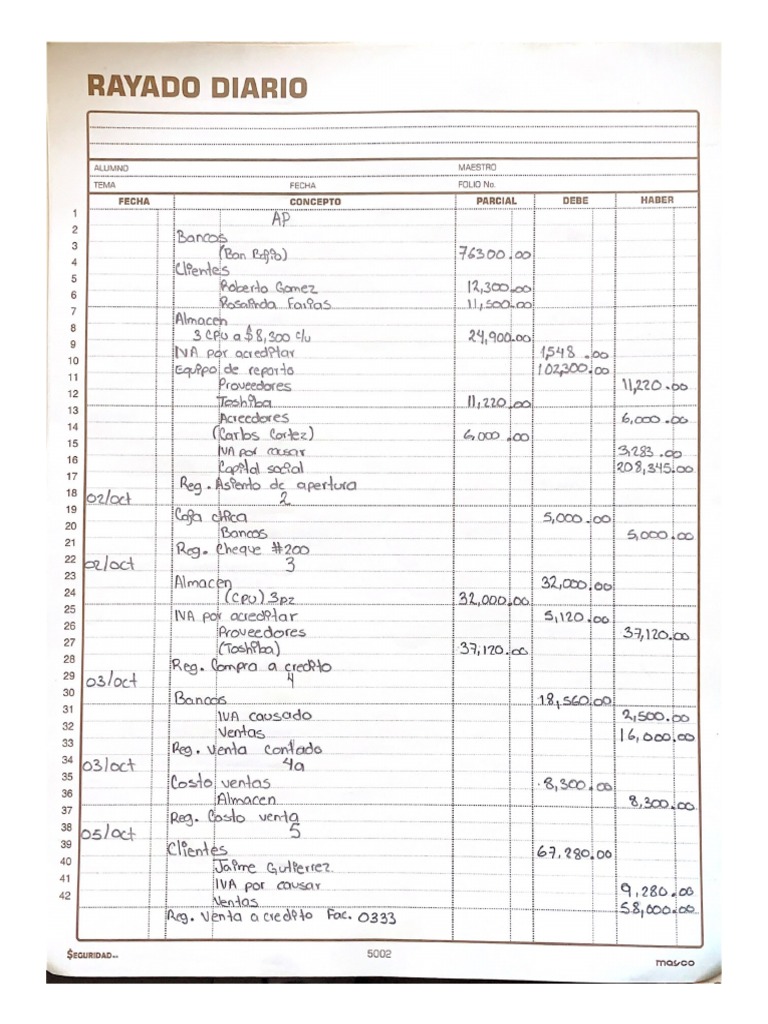 RAYADO DIARIO
ALUMNO MAESTRO
TEMA FECHA FOLIO No.
FECHA CONCEPTO PARCIAL DEBE HABER
1 AP
2 Bancos
3 76300.00
4 Clientes
5 Roberto Gomez 12,300.00
6 Rosalinda Farias 11,500.00
7 Almacen
8 3 CPU a $8,300 c/u 24,900.00
9 IVA por acreditar 1,548.00
10 Equipo de reporto 102,300.00
11 Proveedores 11,220.00
12 Toshiba 11,220.00
13 Acreedores 6,000.00
14 (Carlos Cortez) 6,000.00
15 IVA por causar 3,283.00
16 Capital social 208,345.00
17 Reg. Asiento de apertura
18 02/oct 2
19 Caja chica 5,000.00
20 Bancos 5,000.00
21 Reg. Cheque #200
22 02/oct 3
23 Almacen 32,000.00
24 (CPU) 3pz 32,000.00
25 IVA por acreditar 5,120.00
26 Proveedores 37,120.00
27 (Toshiba) 37,120.00
28 Reg. Compra a credito
29 03/oct 4
30 Bancos 18,560.00
31 IVA causado 2,500.00
32 Ventas 16,000.00
33 Reg. Venta contado
34 03/oct 4a
35 Costo ventas 8,300.00
36 Almacen 8,300.00
37 Reg. Costo venta
38 05/oct 5
39 Clientes 67,280.00
40 Jaime Gutierrez.
41 IVA por causar 9,280.00
42 Ventas 58,000.00
Reg. Venta a credito Fac. 0333
$EGURIDAD 5002 masco